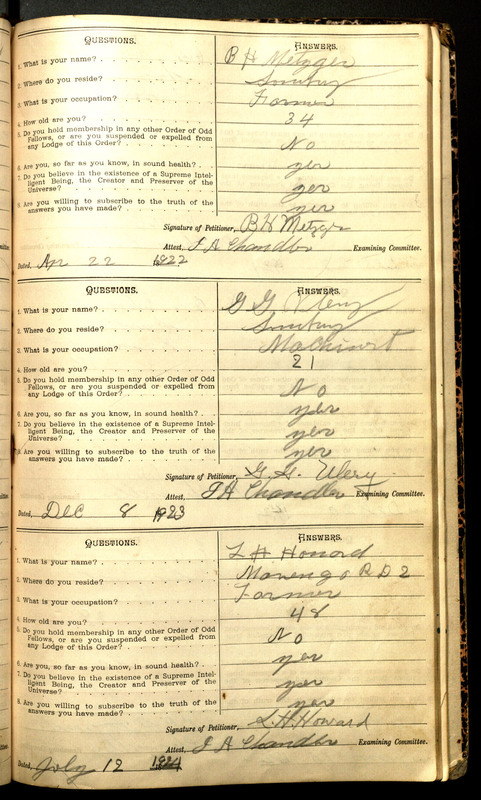 QUESTIONS. ANSWERS.
1. What is your name? B H Metzger
2. Where do you reside?
3. What is your occupation? Farmer
4. How old are you? 34
5. Do you hold membership in any other Order of Odd
Fellows, or are you suspended or expelled from
any Lodge of this Order? No
6. Are you, so far as you know, in sound health? yes
7. Do you believe in the existence of a Supreme Intel-
ligent Being, the Creator and Preserver of the
Universe? yes
8. Are you willing to subscribe to the truth of the
answers you have made? yes
Signature of Petitioner, B H Metzger
Attest, J A Chandler Examining Committee.
Dated, Apr 22 1922
QUESTIONS. ANSWERS.
1. What is your name? G G Ulery
2. Where do you reside?
3. What is your occupation? Machinist
4. How old are you? 21
5. Do you hold membership in any other Order of Odd
Fellows, or are you suspended or expelled from
any Lodge of this Order? No
6. Are you, so far as you know, in sound health? yes
7. Do you believe in the existence of a Supreme Intel-
ligent Being, the Creator and Preserver of the
Universe? yes
8. Are you willing to subscribe to the truth of the
answers you have made? yes
Signature of Petitioner, G. G. Ulery
Attest, J A Chandler Examining Committee.
Dated, Dec 8 1923
QUESTIONS. ANSWERS.
1. What is your name? L H Howard
2. Where do you reside? Marengo R D 2
3. What is your occupation? Farmer
4. How old are you? 48
5. Do you hold membership in any other Order of Odd
Fellows, or are you suspended or expelled from
any Lodge of this Order? No
6. Are you, so far as you know, in sound health? yes
7. Do you believe in the existence of a Supreme Intel-
ligent Being, the Creator and Preserver of the
Universe? yes
8. Are you willing to subscribe to the truth of the
answers you have made? yes
Signature of Petitioner, L. H. Howard
Attest, J A Chandler Examining Committee.
Dated, July 12 1924